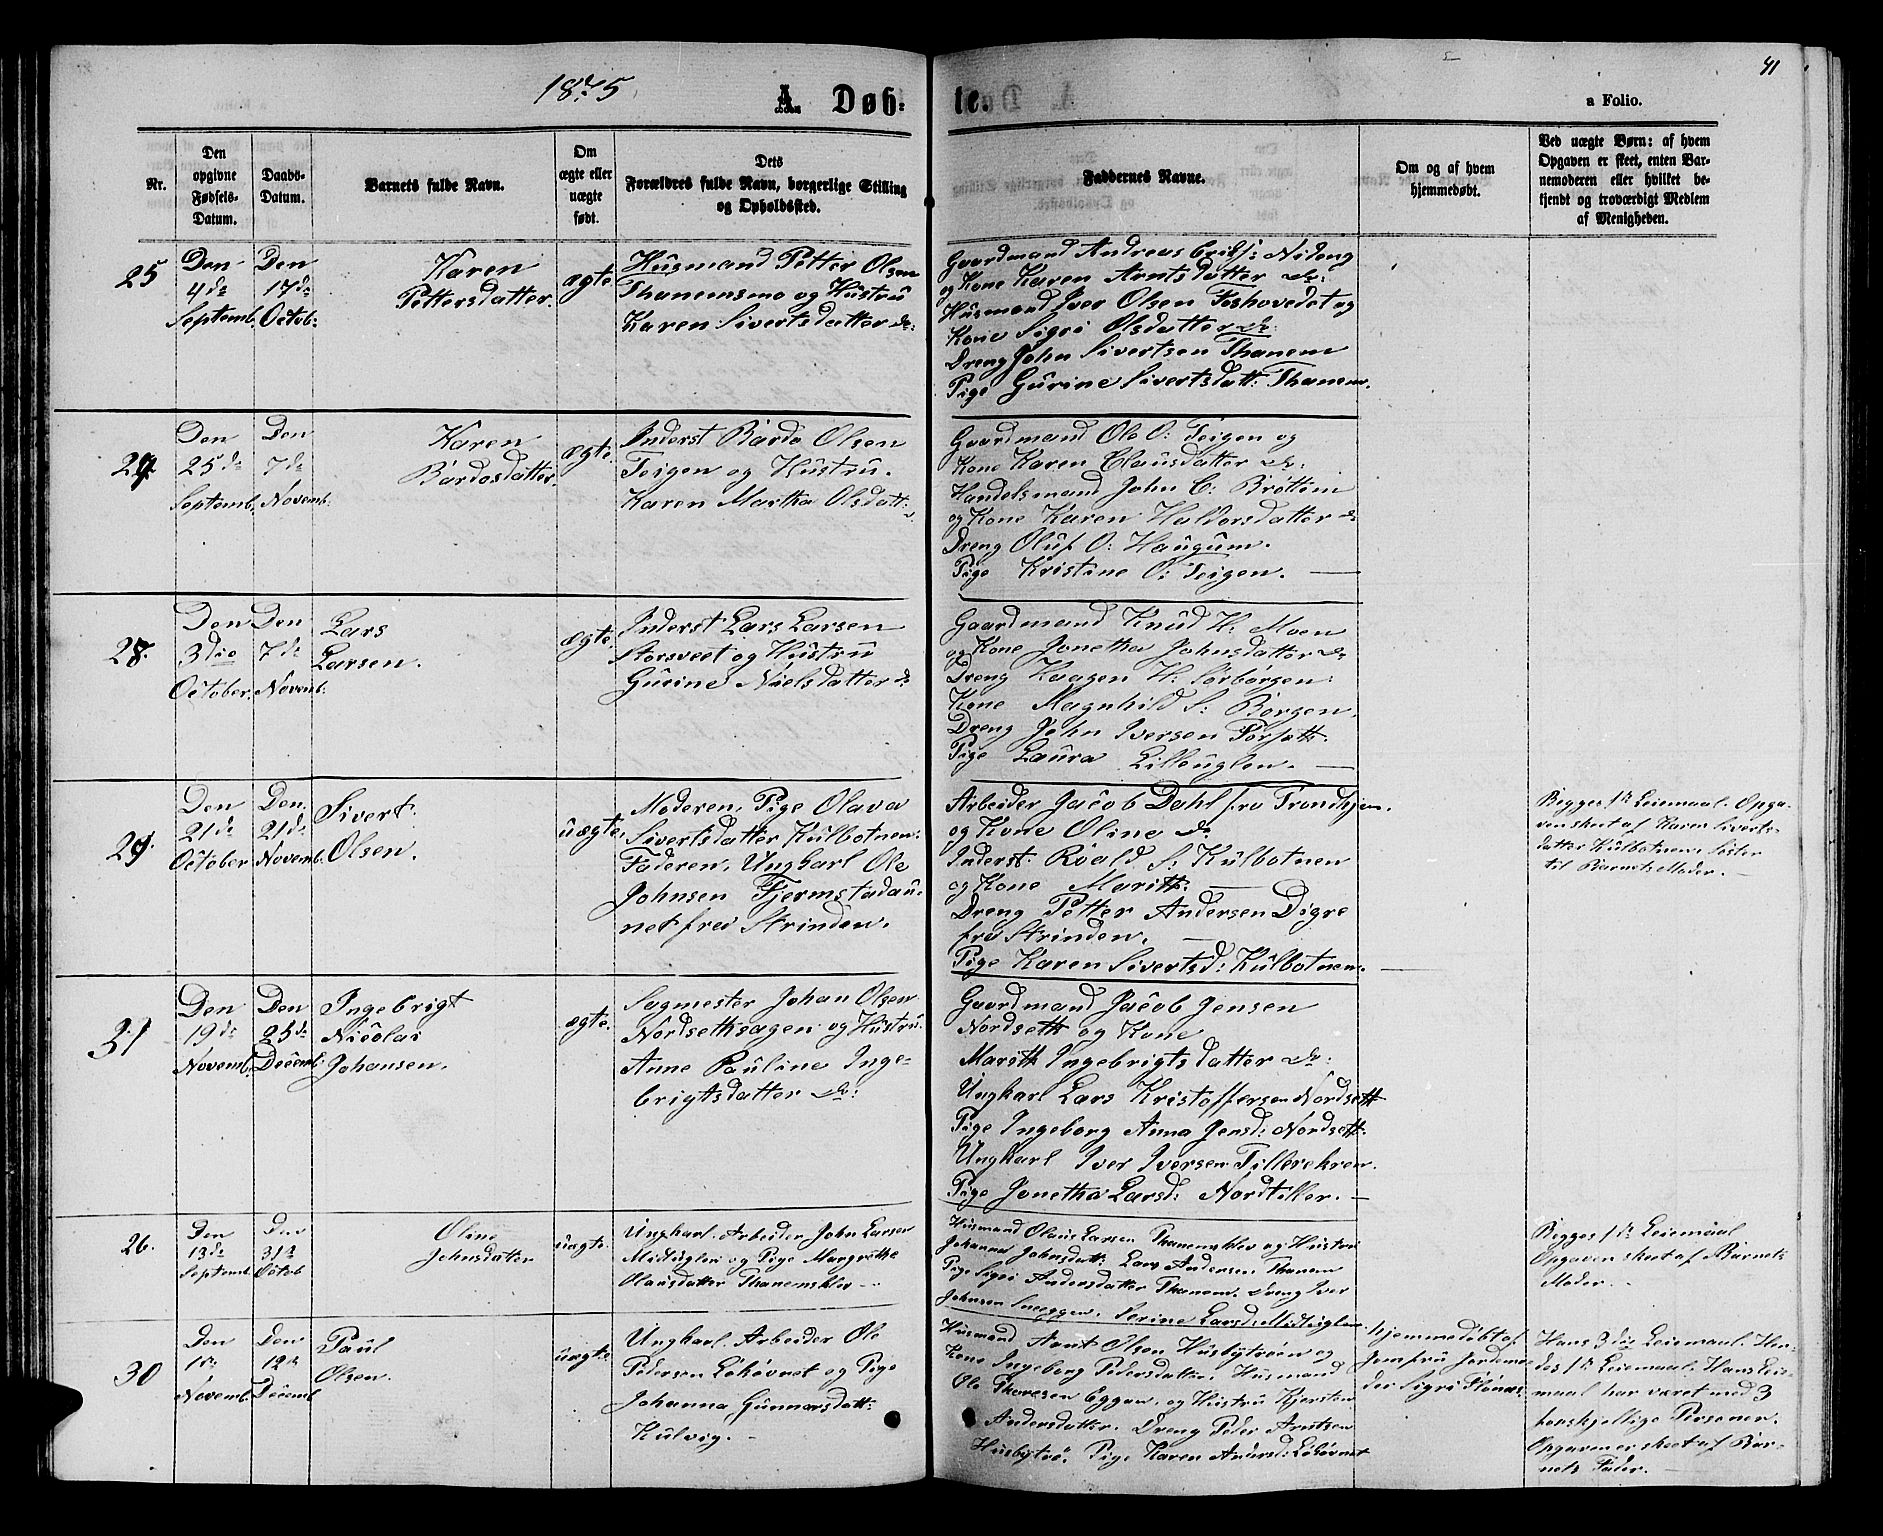 1875
A. Døb-
te.
41
a Folio.
Nr.
Den
opgivne
Fødsels-
Datum.
Daabs-
Datum.
Barnets fulde Navn.
Om
ægte eller
uægte
født.
Dets
Forældres fulde Navn, borgerlige Stilling
og Opholdssted.
Faddernes Navne.
Om og af hvem
hjemmedøbt.
Ved uægte Børn: af hvem
Opgaven er skeet, enten Bar-
nemoderen eller hvilket be-
kjendt og troværdigt Medlem
af Menigheden.
25
Den
4de
Septemb.
Den
17de
Octob:
Karen
Pettersdatter.
ægte
Husmand Petter Olsen
Thanemsmo og Hustru
Karen Sivertsdatter do:
Gaardmand Andreas Eriks: Nideng
og Kone Karen Arntsdatter do:
Husmand Iver Olsen Foshovedet og
Kone Sigri Olsdatter do:
Dreng John Sivertsen Thanem
Pige Gurine Sivertsdatt: Thanem.
Den
25de
Septemb.
Den
7de
Novemb:
Karen
Bardosdatter.
ægte.
Inderst Bardo Olsen
Teigen og Hustru.
Karen Martha Olsdatt:
Gaardmand Ole O: Teigen og
Kone Karen Clausdatter do:
Handelsmand John C: Brøttem
og Kone Karen Haldorsdatter do
Dreng Oluf O: Haugum.
Pige Kristine O: Teigen.
Den
3die
October.
Den
7de
Novemb:
Lars
Larsen.
ægte.
Inderst Lars Larsen
Storsveet og Hustru
Gurine Nielsdatter do
Gaardmand Knud H: Moen
og Kone Jonetha Johnsdatter do
Dreng Haagen H: Sørborgen:
Kone Magnhild S: Borgen.
Dreng John Iversen Forsett.
Pige Laura Lilleuglen.
29.
Den
21de
October
Den.
21de
Novemb.
Sivert.
Olsen.
uægte.
Moderen, Pige Olava
Sivertsdatter Kulbotnen:
Faderen, Ungkarl Ole
Johnsen Fjermstadau-
net fra Strinden.
Arbeider Jacob Dahl fra Trondhjem.
og Kone Oline do
Inderst: Roald S: Kulbotnen
og Kone Maritt.
Dreng Petter Andersen Digre
fra Strinden.
Pige Karen Sivertsd: Kulbotnen.
Begges 1te Leiemaal. Opga-
ven skeet af Karen Siverts-
datter Kulbotnen, Søster
til Barnets Moder.
31
Den
19de
Novemb.
Den
25de
Decemb.
Ingebrigt
Nicolai
Johansen.
ægte.
Sagmester Johan Olsen
Nordsethsagen og Hustru.
Anne Pauline Inge-
brigtsdatter do:
Gaardmand Jacob Jensen
Nordseth og Kone
Maritt Ingebrigtsdatter do:
Ungkarl Lars Kristoffersen Nordsett
Pige Ingeborg Anna Jensd: Nordsett.
Ungkarl Iver Iversen Tillerekren.
Pige Jonetha Larsd: Nordtiller.
26.
Den
13de
Septemb.
Den
31te
Octob
Oline
Johnsdatter
uægte.
Ungkarl. Arbeider John Larsen
Midtuglen og Pige Margrethe
Olausdatter Thanemsklev
Husmand Olaus Larsen Thanemsklev og Hustru
Johanna Johnsdatt: Lars Andersen, Thanem
Pige Sigri Andersdatter Thanem. Dreng Iver
Johnsen Sneeggen. Serine Larsd: Midtuglen
Begges 1te Leiemaal
Opgaven skeet af Barnets
Moder.
30
Den
1te
Novemb.
Den
12te
Decemb
Paul
Olsen.
uægte
Ungkarl. Arbeider Ole
Pedersen Løkøvnet og Pige
Johanna Gunnarsdatt:
Kulvig.
Husmand Arnt Olsen Husbytrøen og
Kone Ingeborg Pedersdatter. Husmand
Ole Thoresen Eggan og Hustru Kjersten
Andersdatter. Dreng Peder Arntsen
Husbytrø. Pige Karen
hjemmedøbt af
Jomfru Jordemo-
der Sigri
Hans 3die Leiemaal. Hen-
des 1te Leiemaal. Hans Leie-
maal har været med 3
forskjellige Personer.
Opgaven er skeet af Bar-
nets Fader.